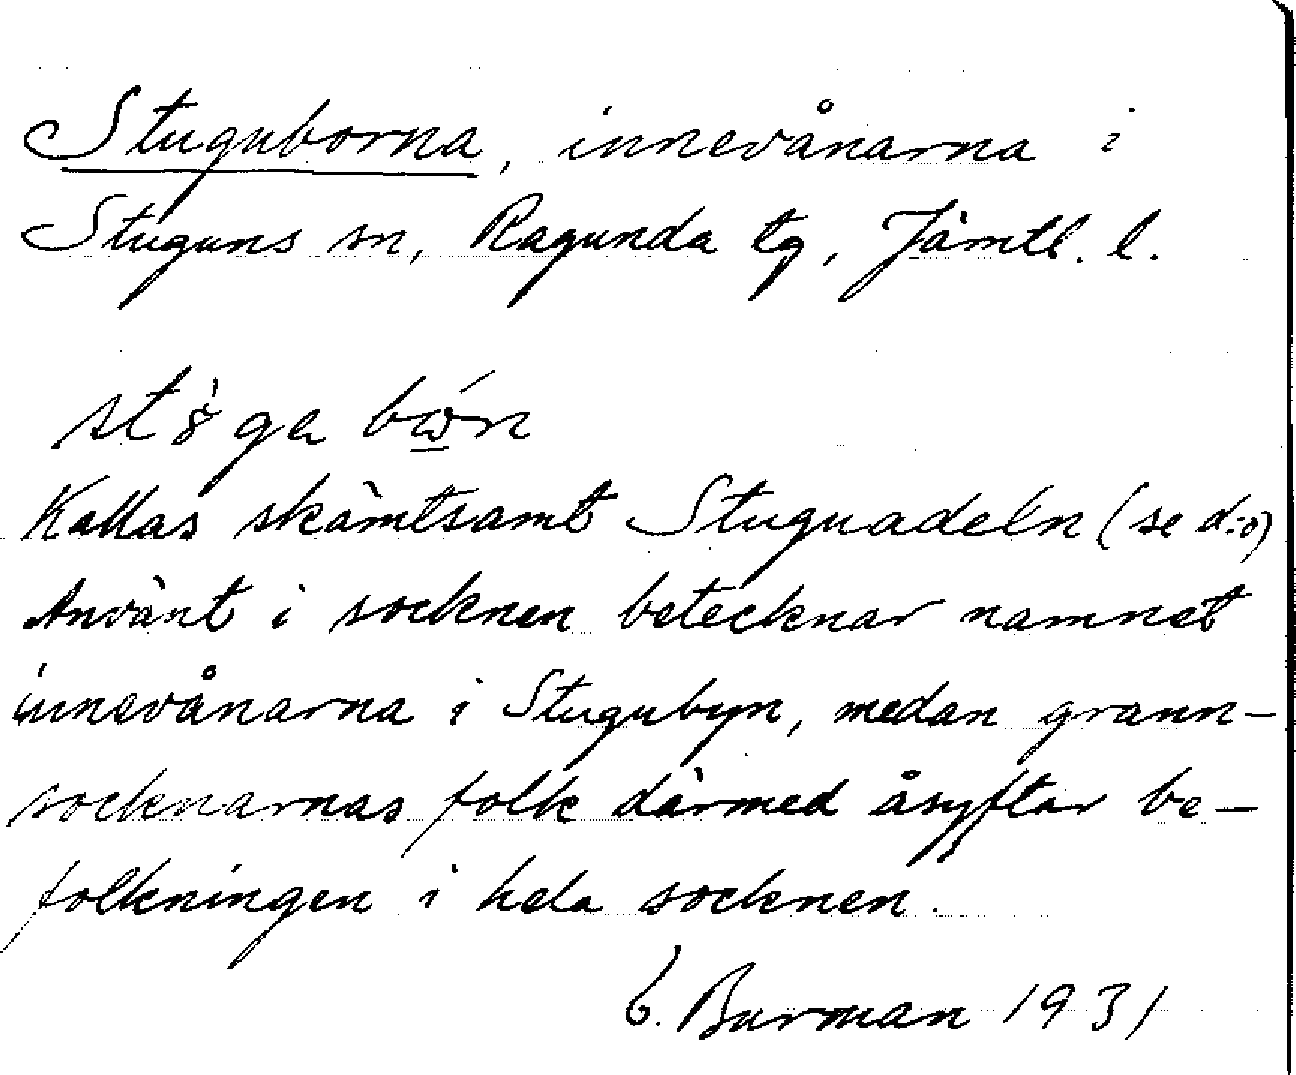 Stuguborna, innevånarna i
Stuguns sn, Ragunda tg, Jämtl. l.
Kallas skämtsamt Stuguadeln (se d:o)
Använt i socknen betecknar namnet
innevånarna i Stugubyn, medan grann-
socknarnas folk därmed åsyftar be-
folkningen i hela socknen.
Burman 1931